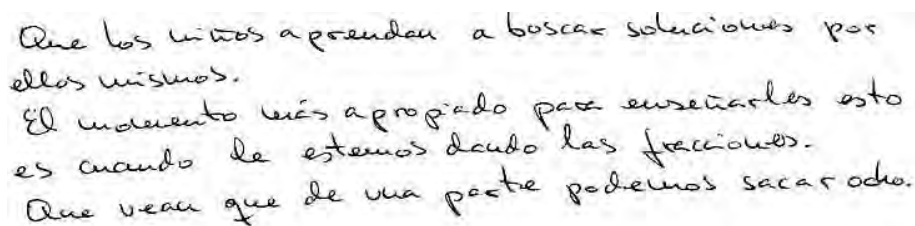 Que los niños aprendan a boscar soluciones por
ellos mismos.
El momento más apropiado para enseñarles esto
es cuando le estemos dando las fracciones.
Que vean que de una parte podemos sacar ocho.